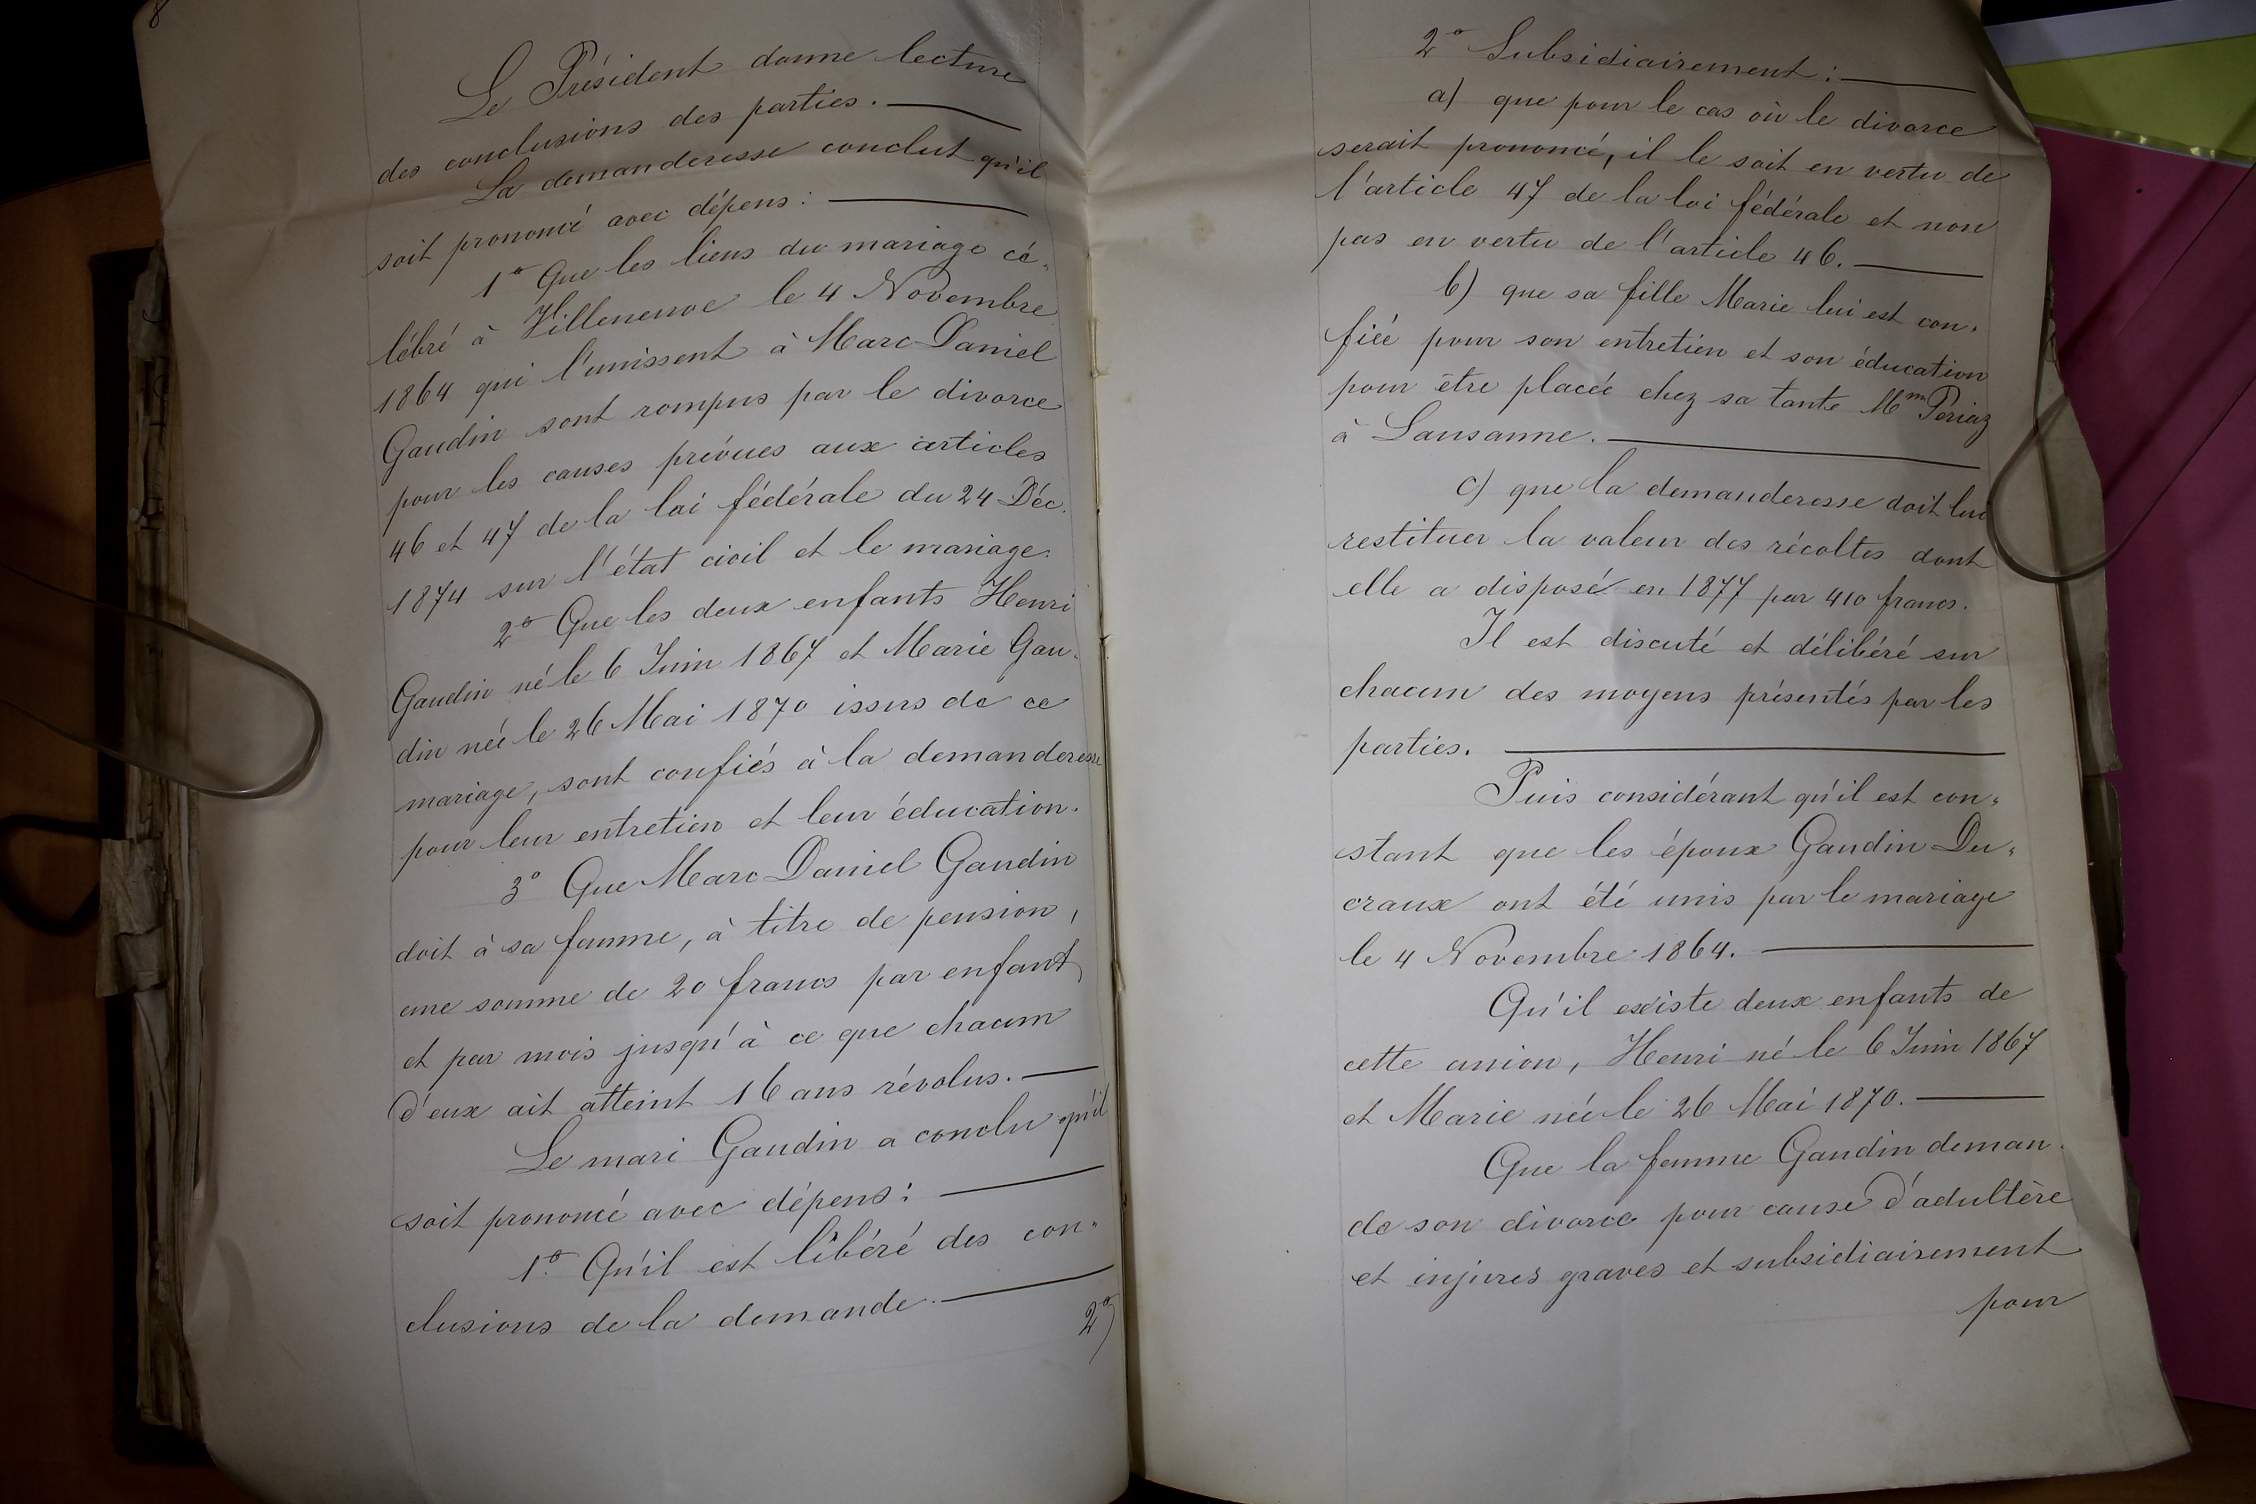 8
Le Président donne lecture
des conclusions des parties.
La demanderesse conclut qu'il
soit prononcé avec dépens:
1º Que les liens du mariage cé-
lébré à Villeneuve le 4 Novembre
1864 qui l'unissent à Marc Daniel
Gaudin sont rompus par le divorce
pour les causes prévues aux articles
46 et 47 de la loi fédérale du 24 Déc.
1874 sur l'état civil et le mariage.
2º Que les deux enfants Henri
Gaudin né le 6 Juin 1867 et Marie Gau-
din née le 26 Mai 1870 issus de ce
mariage, sont confiés à la demanderesse
pour leur entretien et leur éducation.
3º Que Marc Daniel Gaudin
doit à sa femme, à titre de pension,
une somme de 20 francs par enfant
et par mois jusqu'à ce que chacun
d'eux ait atteint 16 ans révolus.
Le mari Gaudin a conclu qu'il
soit prononcé avec dépens:
1º Qu'il est libéré des con-
clusions de la demande.
2º
2º Subsidiairement:
a) que pour le cas où le divorce
serait prononcé, il le soit en vertu de
l'article 47 de la loi fédérale et non
pas en vertu de l'article 46.
b) que sa fille Marie lui est con-
fiée pour son entretien et son éducation
pour être placée chez sa tante Mm Periaz
à Lausanne.
c) que la demanderesse doit lui
restituer la valeur des récoltes dont
elle a disposé en 1877 par 410 francs.
Il est discuté et délibéré sur
chacun des moyens présentés par les
parties.
Puis considérant qu'il est con-
stant que les époux Gaudin Du-
craux ont été unis par le mariage
le 4 Novembre 1864.
Qu'il existe deux enfants de
cette union, Henri né le 6 Juin 1867
et Marie née le 26 Mai 1870.
Que la femme Gaudin deman-
de son divorce pour cause d'adultère
et injures graves et subsidiairement
pour